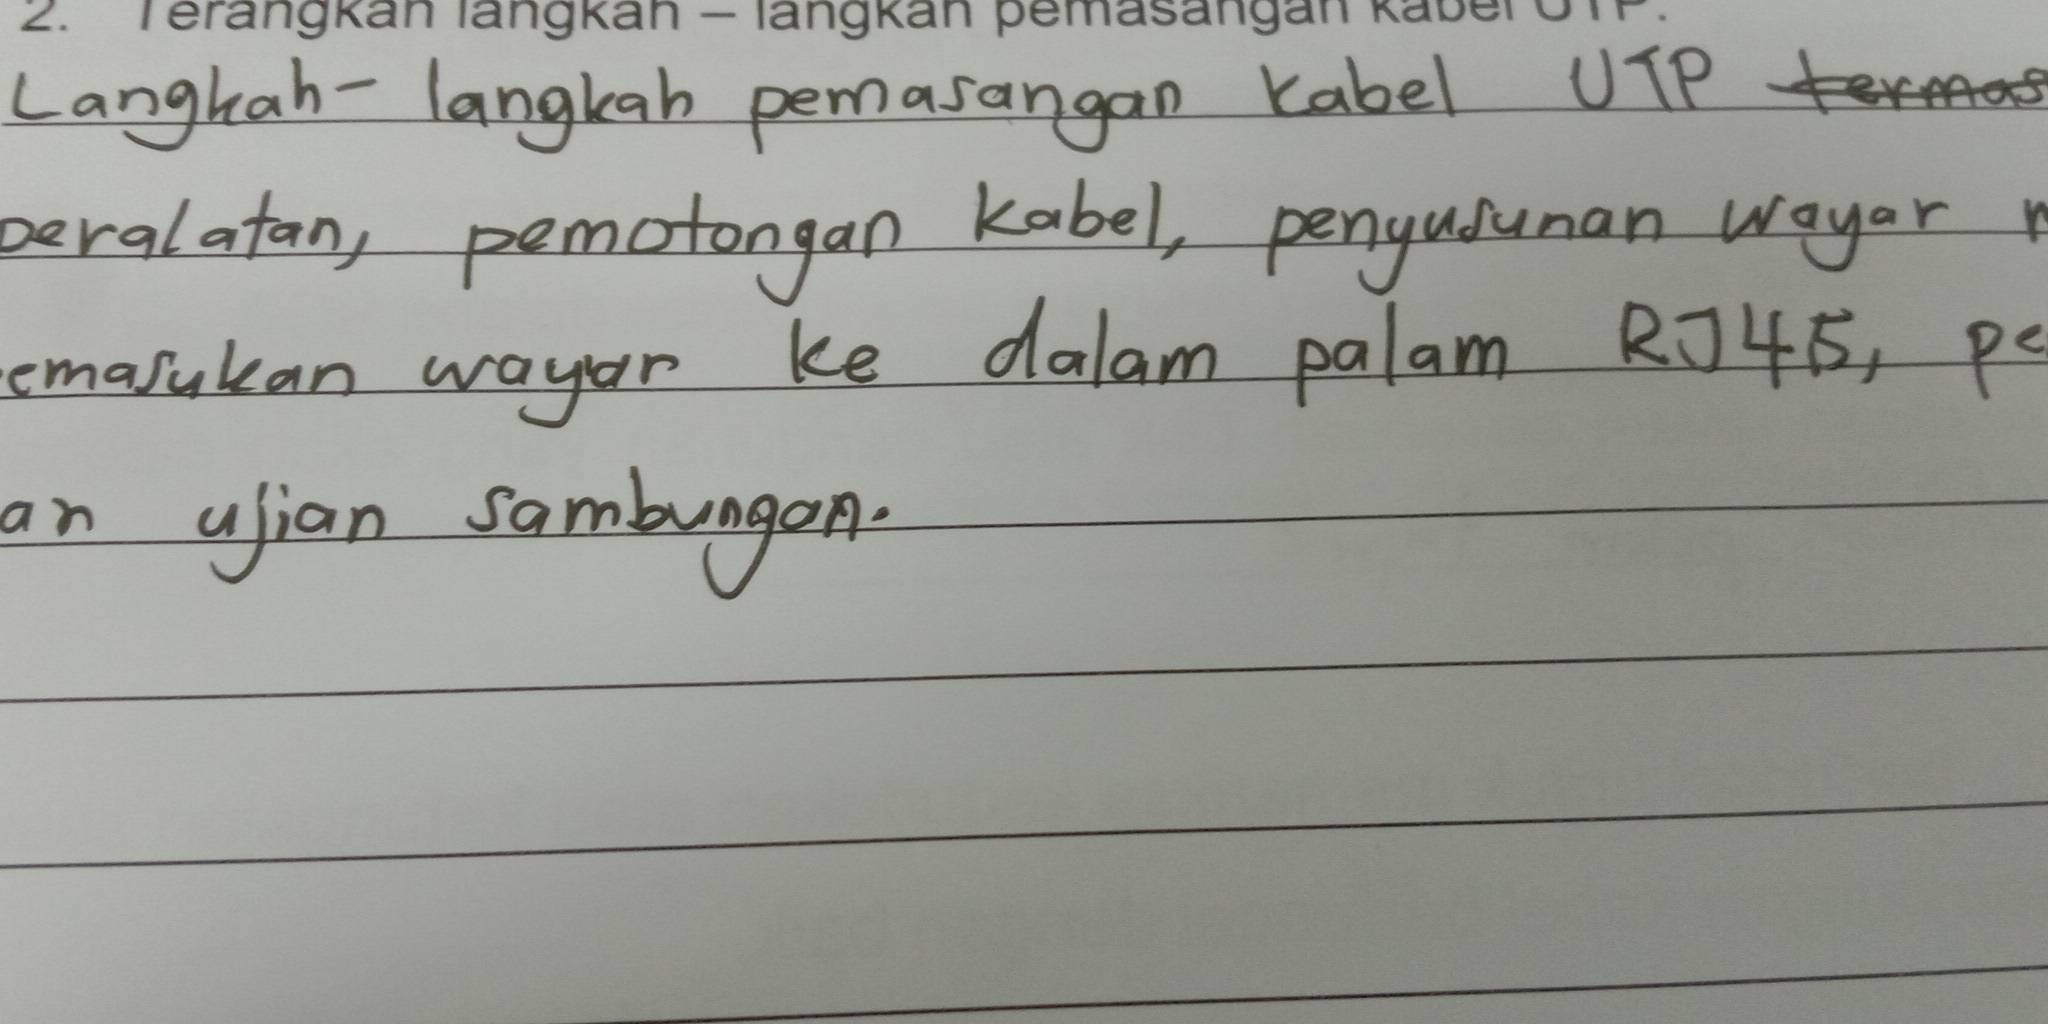 2. Terangkan langkah – langkah pemasangan kabel UTP.
Langkah- langkah pemasangan kabel UTP
peralatan, pemotongan kabel, penyusunan wayar
emasukan wayar ke dalam palam RJ45, pe
an ujian sambungan.